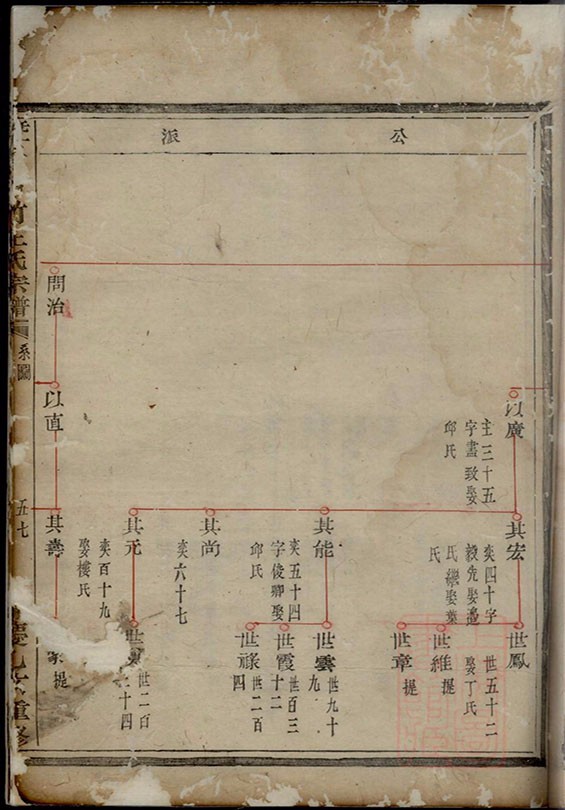 公派
以廣
主三十五
字盡致娶
邱氏
其宏
奕四十字
毅先娶馮
氏繼娶葉
氏
世鳳
世五十二
娶丁氏
世維
提
世章
提
其能
奕五十四
字俊卿娶
邱氏
世雲
世九十
九
世霞
世百三
十二
世祿
世二百
四
其尚
奕六十七
其元
奕百十九
娶樓氏
世
世二百
十四
問治
以直
其壽
提
竹
氏宗譜
系圖
五七
重修